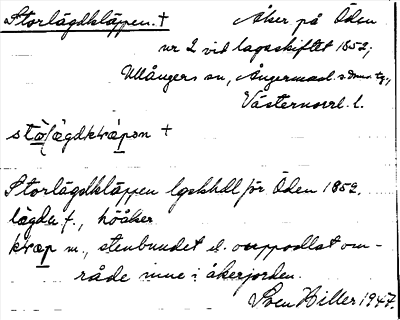 Storlägdkläppen. † Åker på Öden
nr 2 vid lagaskiftet 1852;
Ullångers sn, Ångermanl. s. domsn. tg.,
Västernorrl. l.
Storlägdkläppen lgskhdl för Öden 1852.
lägda f., höåker
m., stenbundet el. ouppodlat om-
råde inne i åkerjorden.
Sven Hiller 1947.